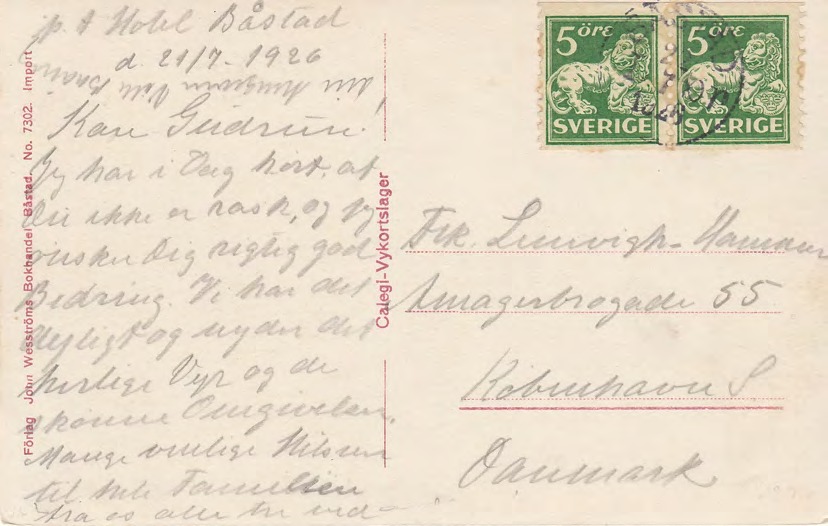 p. t. Hotel Båstad
d. 21/7 - 1926
Kære Gudrun!
Jeg har i Dag hørt, at
Du ikke er rask, og jeg
ønsker Dig rigtig god
Bedring. Vi har det
dejligt og nyder det
herlige Vejr og de
skønne Omgivelser.
Mange venlige Hilsner
til hele Familien
fra os alle tre ved
Förlag John Wesströms Bokhandel Båstad. No. 7302. Import
Calegi-Vykortslager
5 öre
SVERIGE
5 öre
SVERIGE
Frk. Hansen
Amagerbrogade 55
København S.
Danmark